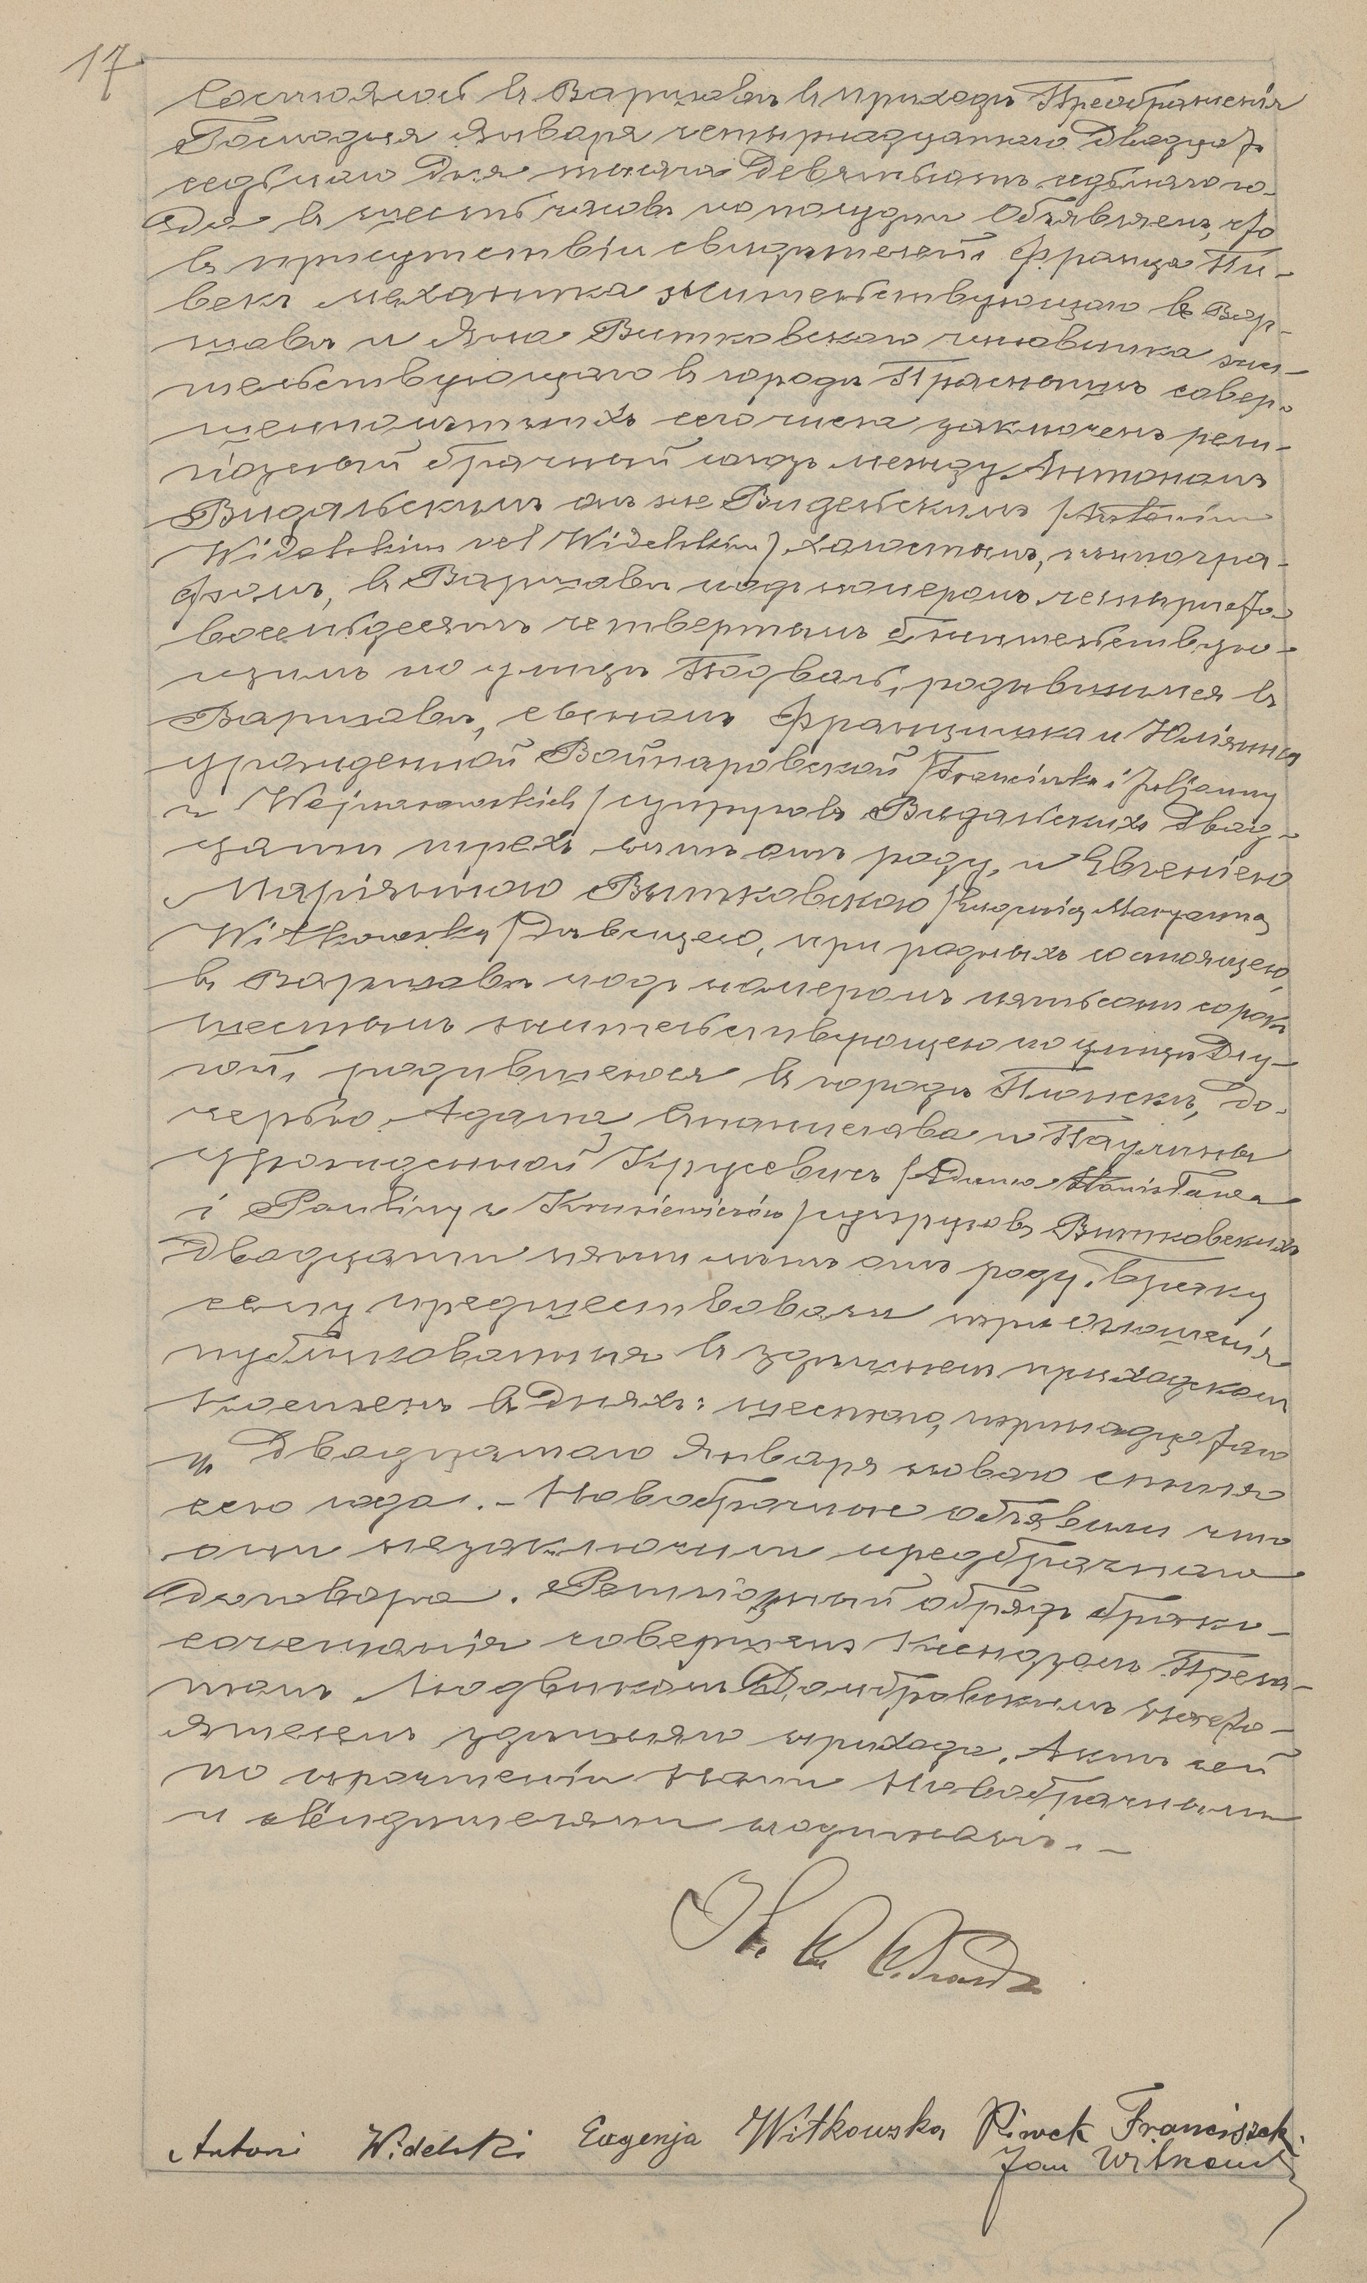 17
Состоялось въ Варшавѣ въ приходѣ Преображенія
Господня Января четырнадцатаго Двадцать
седьмаго Дня тысяча Девятьсотъ седьмаго го-
да въ шесть часовъ по полудни Объявляемъ, что
въ присутствіи свидѣтелей Франца Пи-
векъ механика жительствующаго въ Вар-
шавѣ и Яна Витковскаго чиновника жи-
тельствующаго въ городѣ Праснышѣ совер-
шеннолѣтнихъ сего числа заключенъ рели-
гіозный брачный союзъ между Антономъ
Видальскимъ онъ же Видельскимъ /Antonim
Widalskim vel Widelskim/, холостымъ, типогра-
фомъ, въ Варшавѣ подъ номеромъ четыреста
восемьдесятъ четвертымъ б жительствую-
щимъ по улицѣ Подваль, родившимся въ
Варшавѣ, сыномъ Францишка и Юліанны
урожденной Войнаровской /Franciszka i Juljanny
z Wojnarowskich/ супруговъ Видальскихъ Двад-
цати трехъ лѣтъ отъ роду, и Евгеніею
Маріянною Витковскою /Eugenią Maryanną
Witkowską/ Дѣвицею, при родныхъ состоящею,
въ Варшавѣ подъ номеромъ пятьсотъ сорокъ
шестымъ жительствующею по улицѣ Длу-
гой, родившеюся въ городѣ Плонскѣ, до-
черью Адама Станислава и Паулины
урожденной Крусевичъ /Adama Stanisława
i Pauliny z Krusiewiczów/ супруговъ Витковскихъ
Двадцати пяти лѣтъ отъ роду. Браку
сему предшествовали три оглашенія
публикованныя въ здѣшнемъ приходскомъ
Костелѣ въ Дняхъ: шестаго, тринадцатаго
и Двадцатаго Января новаго стиля
сего года. - Новобрачные объявили что
они незаключили предбрачнаго
договора. Религіозный обрядъ брако-
сочетанія совершенъ Ксендзомъ Прела-
томъ Людвикомъ Домбровскимъ Настоя-
ятелемъ здѣшняго прихода. Актъ сей
по прочтеніи Нами Новобрачными
и свидѣтелями подписанъ. -
Antoni Widelski Eugenja Witkowska Piwek Franciszek
Jan Witkowski